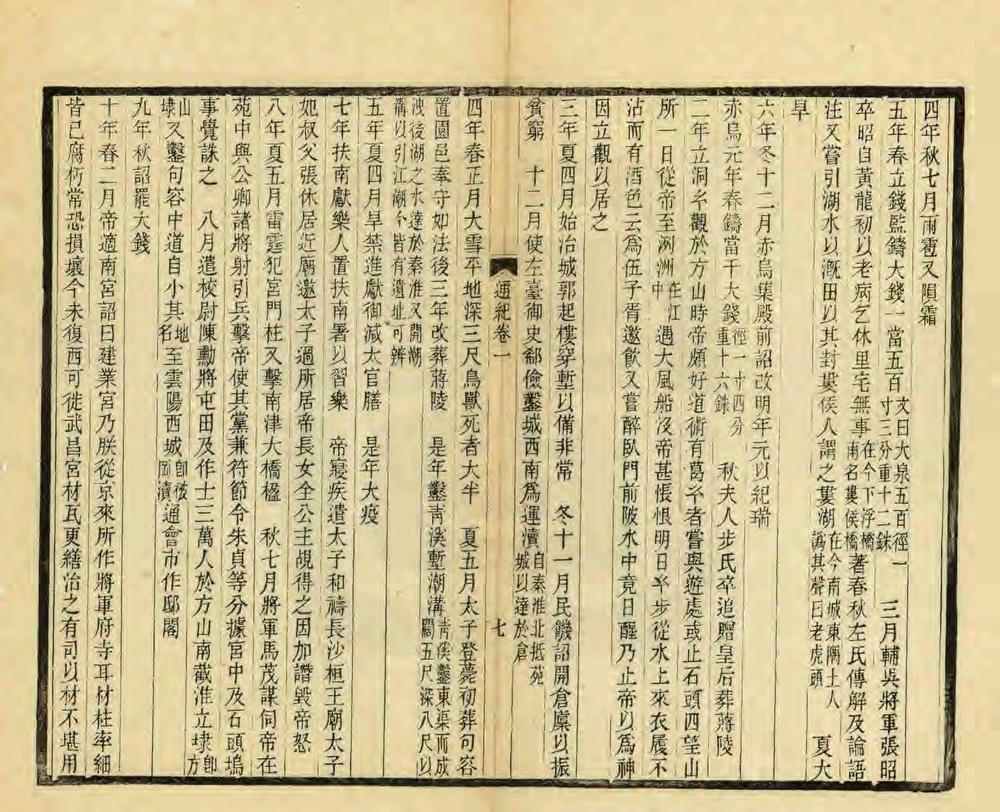 四年秋七月雨雹又隕霜
五年春立錢監鑄大錢一當五百文曰大泉五百徑一寸三分重十二銖 三月輔吳將軍張昭
卒昭自黃龍初以老病乞休里宅無事在今下浮橋南名婁侯橋著春秋左氏傳解及論語
注又嘗引湖水以溉田以其封婁侯人謂之婁湖在今南城東隅土人譌其聲曰老虎頭 夏大
旱
六年冬十二月赤烏集殿前詔改明年元以紀瑞
赤烏元年春鑄當千大錢徑一寸四分重十六銖 秋夫人步氏卒追贈皇后葬蔣陵
二年立洞玄觀於方山時帝頗好道術有葛玄者嘗與遊處或止石頭四望山
所一日從帝至洌洲在江中遇大風船沒帝甚悵恨明日玄步從水上來衣履不
沾而有酒色云為伍子胥邀飲又嘗醉臥門前陂水中竟日醒乃止帝以為神
因立觀以居之
三年夏四月始治城郭起樓穿塹以備非常 冬十一月民饑詔開倉廩以振
貧窮 十二月使左臺御史郗儉鑿城西南為運瀆自秦淮北抵苑城以達於倉
通紀卷一 七
四年春正月大雪平地深三尺鳥獸死者大半 夏五月太子登薨初葬句容
置園邑奉守如法後三年改葬蔣陵 是年鑿青溪塹潮溝青溪鑿東渠而成闊五尺深八尺以
洩後湖之水達於秦淮又開潮溝以引江潮今皆有遺址可辨
五年夏四月旱禁進獻御減太官膳 是年大疫
七年扶南獻樂人置扶南署以習樂 帝寢疾遣太子和禱長沙桓王廟太子
妃叔父張休居近廟邀太子過所居帝長女全公主覘得之因加譖毀帝怒
八年夏五月雷霆犯宮門柱又擊南津大橋楹 秋七月將軍馬茂謀伺帝在
苑中與公卿諸將射引兵擊帝使其黨兼符節令朱貞等分據宮中及石頭塢
事覺誅之 八月遣校尉陳勳將屯田及作士三萬人於方山南截淮立埭即方
山埭又鑿句容中道自小其地名至雲陽西城即破岡瀆通會市作邸閣
九年秋詔罷大錢
十年春二月帝適南宮詔曰建業宮乃朕從京來所作將軍府寺耳材柱率細
皆已腐朽常恐損壞今未復西可徙武昌宮材瓦更繕治之有司以材不堪用